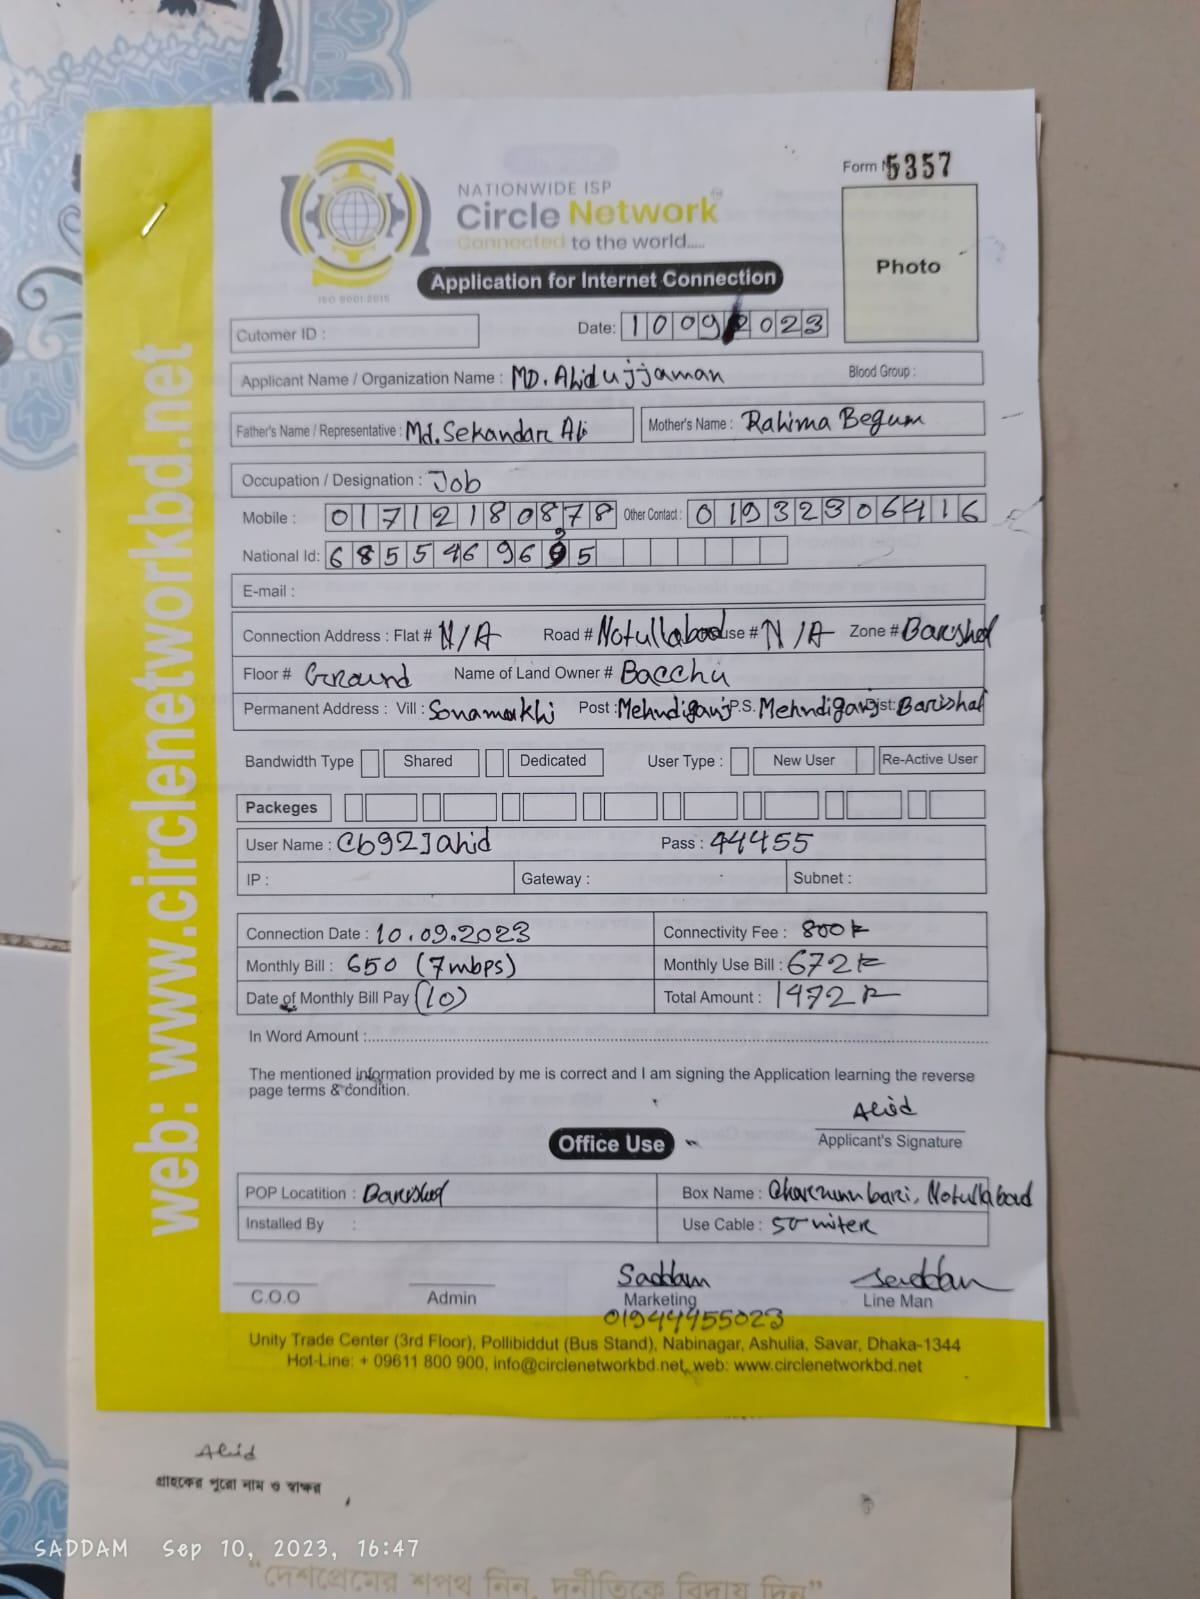 Form 5357
NATIONWIDE ISP
Circle Network
Connected to the world.....
ISO 9001:2015
Photo
Application for Internet Connection
Cutomer ID :
Date: 10092023
Applicant Name / Organization Name : MD. Ahidujjaman Blood Group :
Father's Name / Representative : Md. Sekandar Ali Mother's Name : Rahima Begum
Occupation / Designation : Job
Mobile : 01712180878 Other Contact : 01932306416
National Id: 6855469695
E-mail :
Connection Address : Flat # N/A Road # Notullabad use # N/A Zone # Barishal
Floor # Ground Name of Land Owner # Bacchu
Permanent Address : Vill : Sonamukhi Post : Mehndiganj P.S. Mehndiganj ist: Barishal
Bandwidth Type Shared Dedicated User Type : New User Re-Active User
Packeges
User Name : Cb92Jahid Pass : 44455
IP : Gateway : Subnet :
Connection Date : 10.09.2023 Connectivity Fee : 800
Monthly Bill : 650 (7mbps) Monthly Use Bill : 672
Date of Monthly Bill Pay (10) Total Amount : 1472
In Word Amount :
The mentioned information provided by me is correct and I am signing the Application learning the reverse
page terms & condition.
Ahid
Applicant's Signature
Office Use
POP Locatition : Barishal Box Name : Notullabad
Installed By : Use Cable : 50 miter
Saddam Saddam
C.O.O Admin Marketing Line Man
01944455023
Unity Trade Center (3rd Floor), Pollibiddut (Bus Stand), Nabinagar, Ashulia, Savar, Dhaka-1344
Hot-Line: + 09611 800 900, info@circlenetworkbd.net, web: www.circlenetworkbd.net
web: www.circlenetworkbd.net
Ahid
গ্রাহকের পুরো নাম ও স্বাক্ষর
SADDAM Sep 10, 2023, 16:47
"দেশপ্রেমের শপথ নিন, দুর্নীতিকে বিদায় দিন"